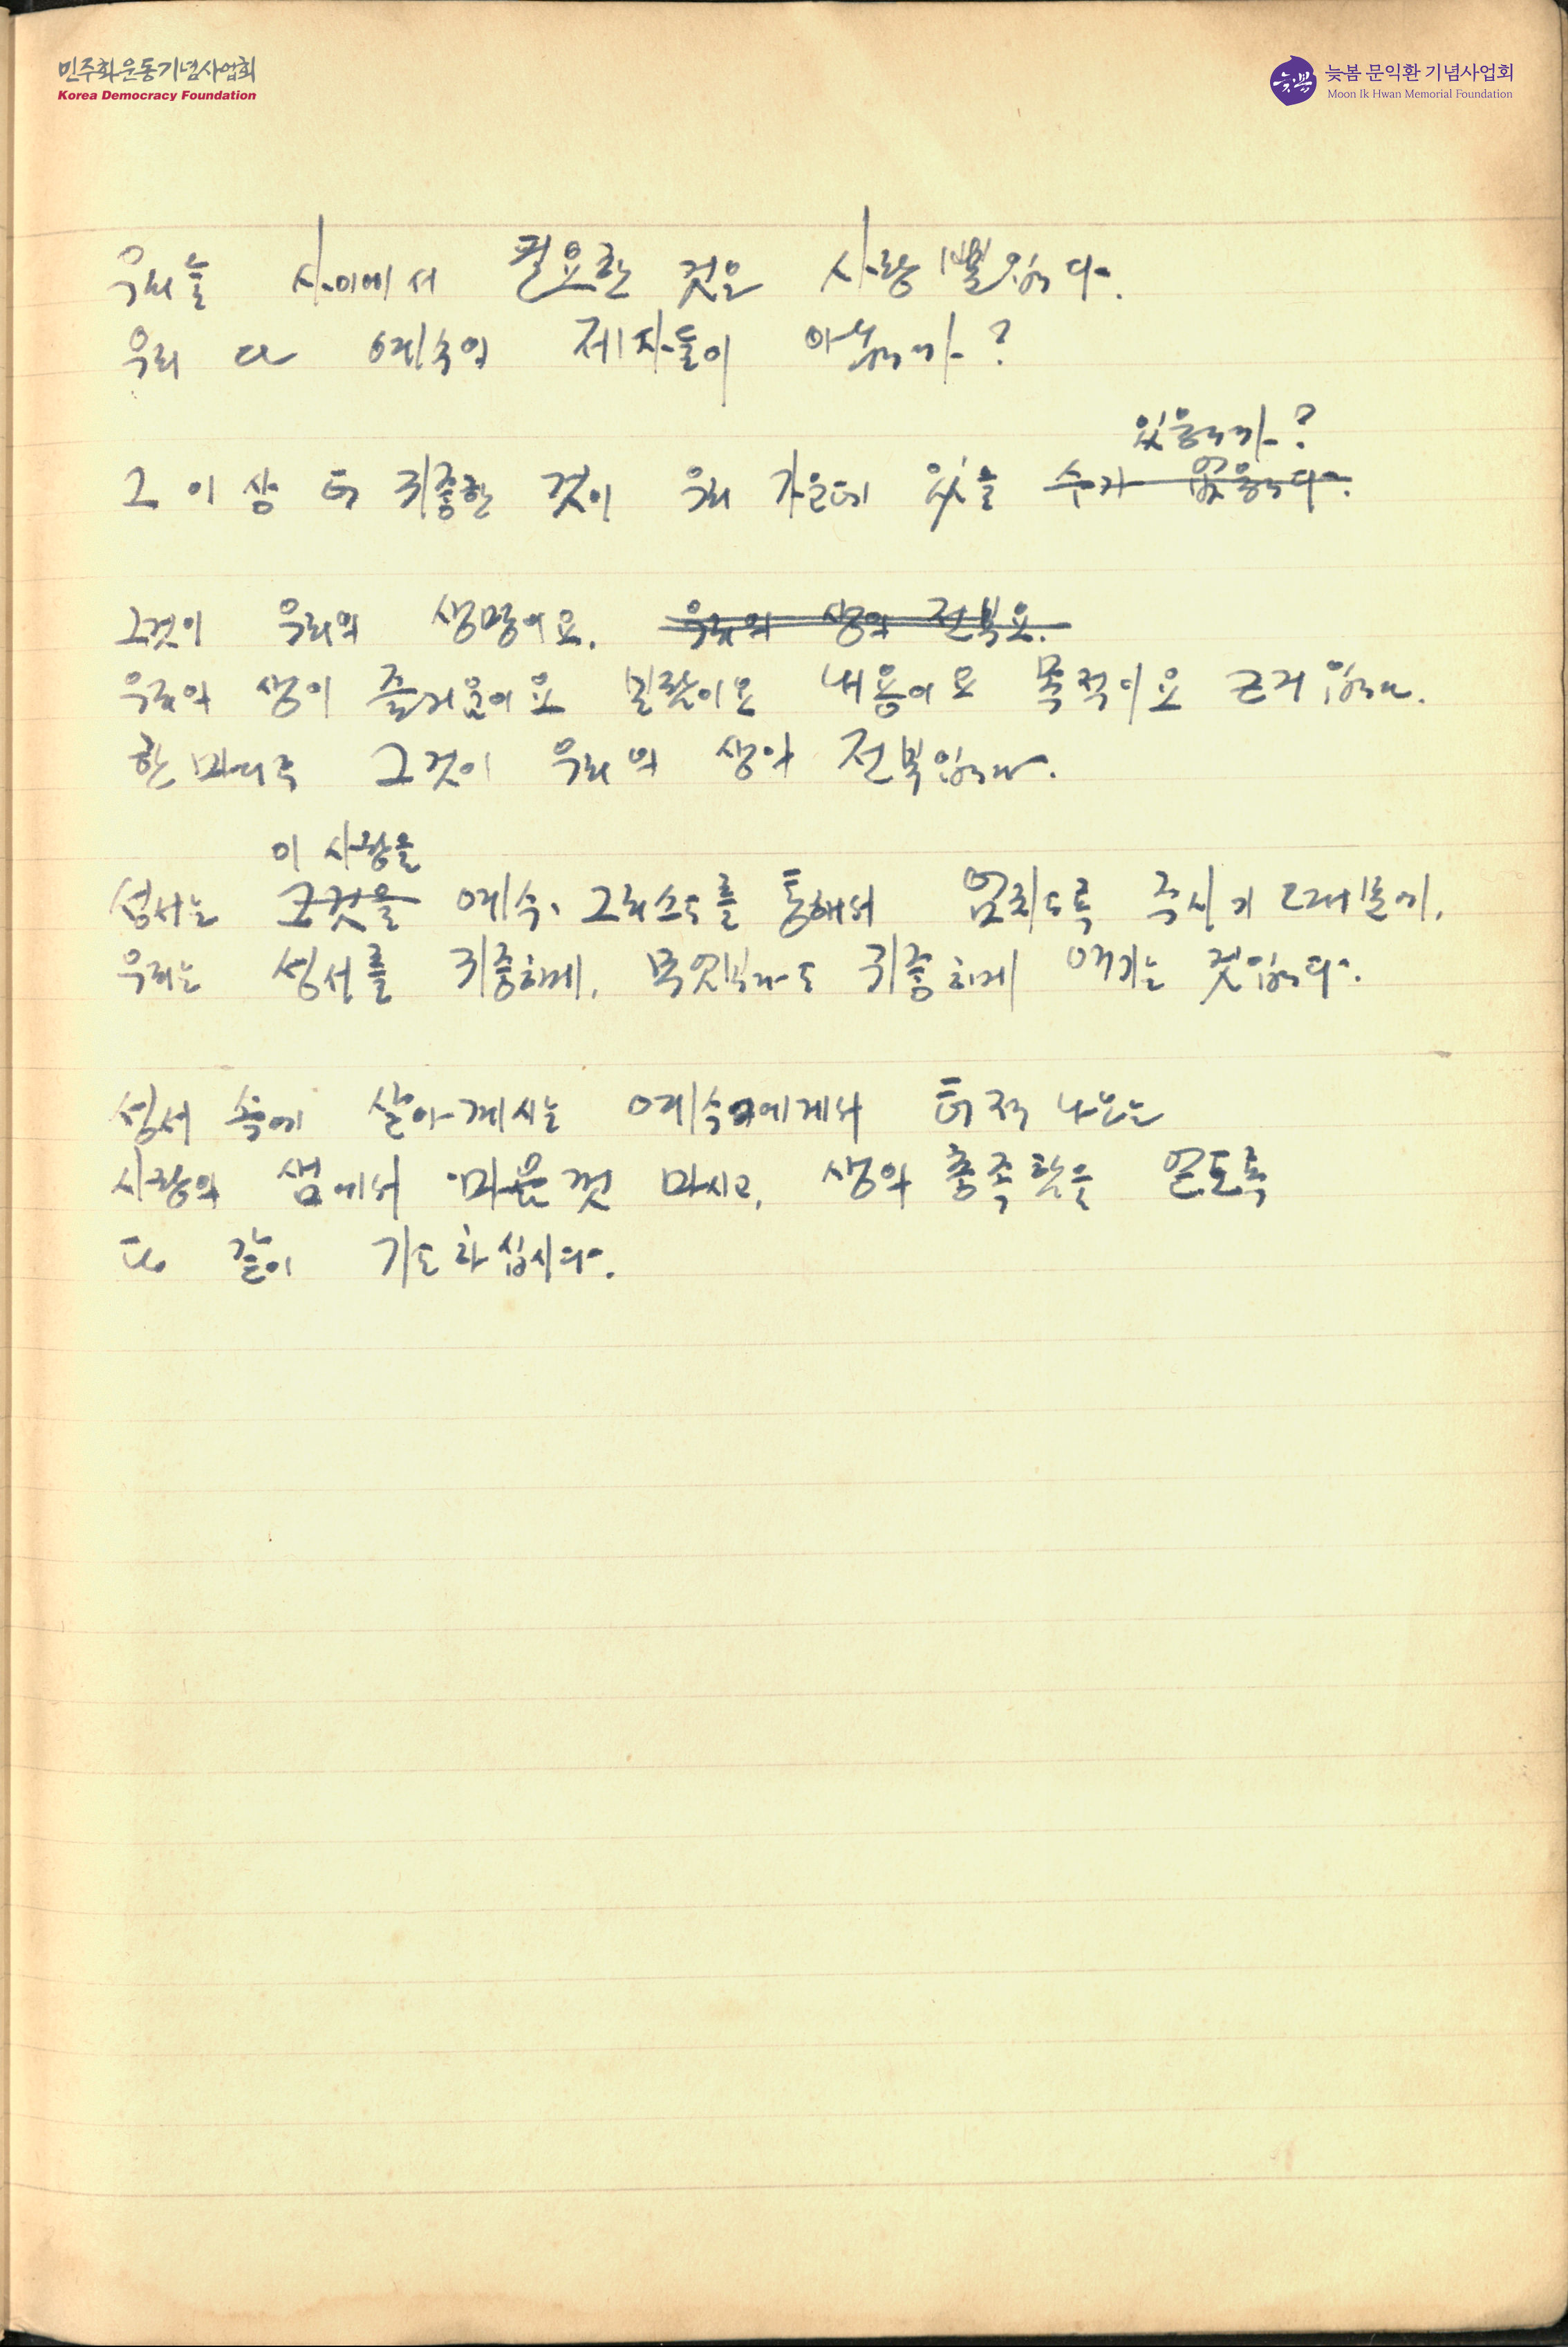 민주화운동기념사업회
Korea Democracy Foundation
늦봄
늦봄 문익환 기념사업회
Moon Ik Hwan Memorial Foundation
우리들 사이에서 필요한 것은 사랑 뿐입니다.
우리 다 예수의 제자들이 아닙니까?
있읍니까?
그 이상 더 귀중한 것이 우리 가운데 있을 수가 없읍니다.
그것이 우리의 생명이요. 우리의 생의 전부요.
우리의 생의 즐거움이요 보람이요 내용이요 목적이요 근거입니다.
한 마디로 그것이 우리의 생의 전부입니다.
이 사랑을
성서는 그것을 예수 그리스도를 통해서 넘치도록 주시기 때문에,
우리는 성서를 귀중하게, 무엇보다도 귀중하게 여기는 것입니다.
성서 속에 살아계시는 예수에게서 터져 나오는
사랑의 샘에서 마음껏 마시고, 생의 충족함을 얻도록
다 같이 기도하십시다.